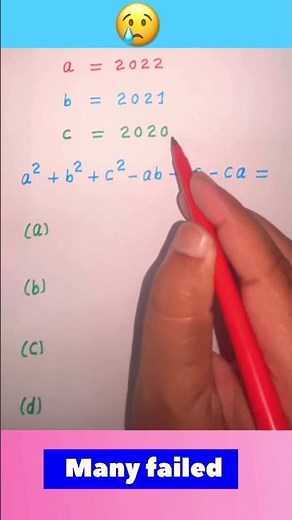 a = 2022
b = 2021
c = 2020
a² + b² + c² - ab - c - ca =
(a)
(b)
(c)
(d)
Many failed